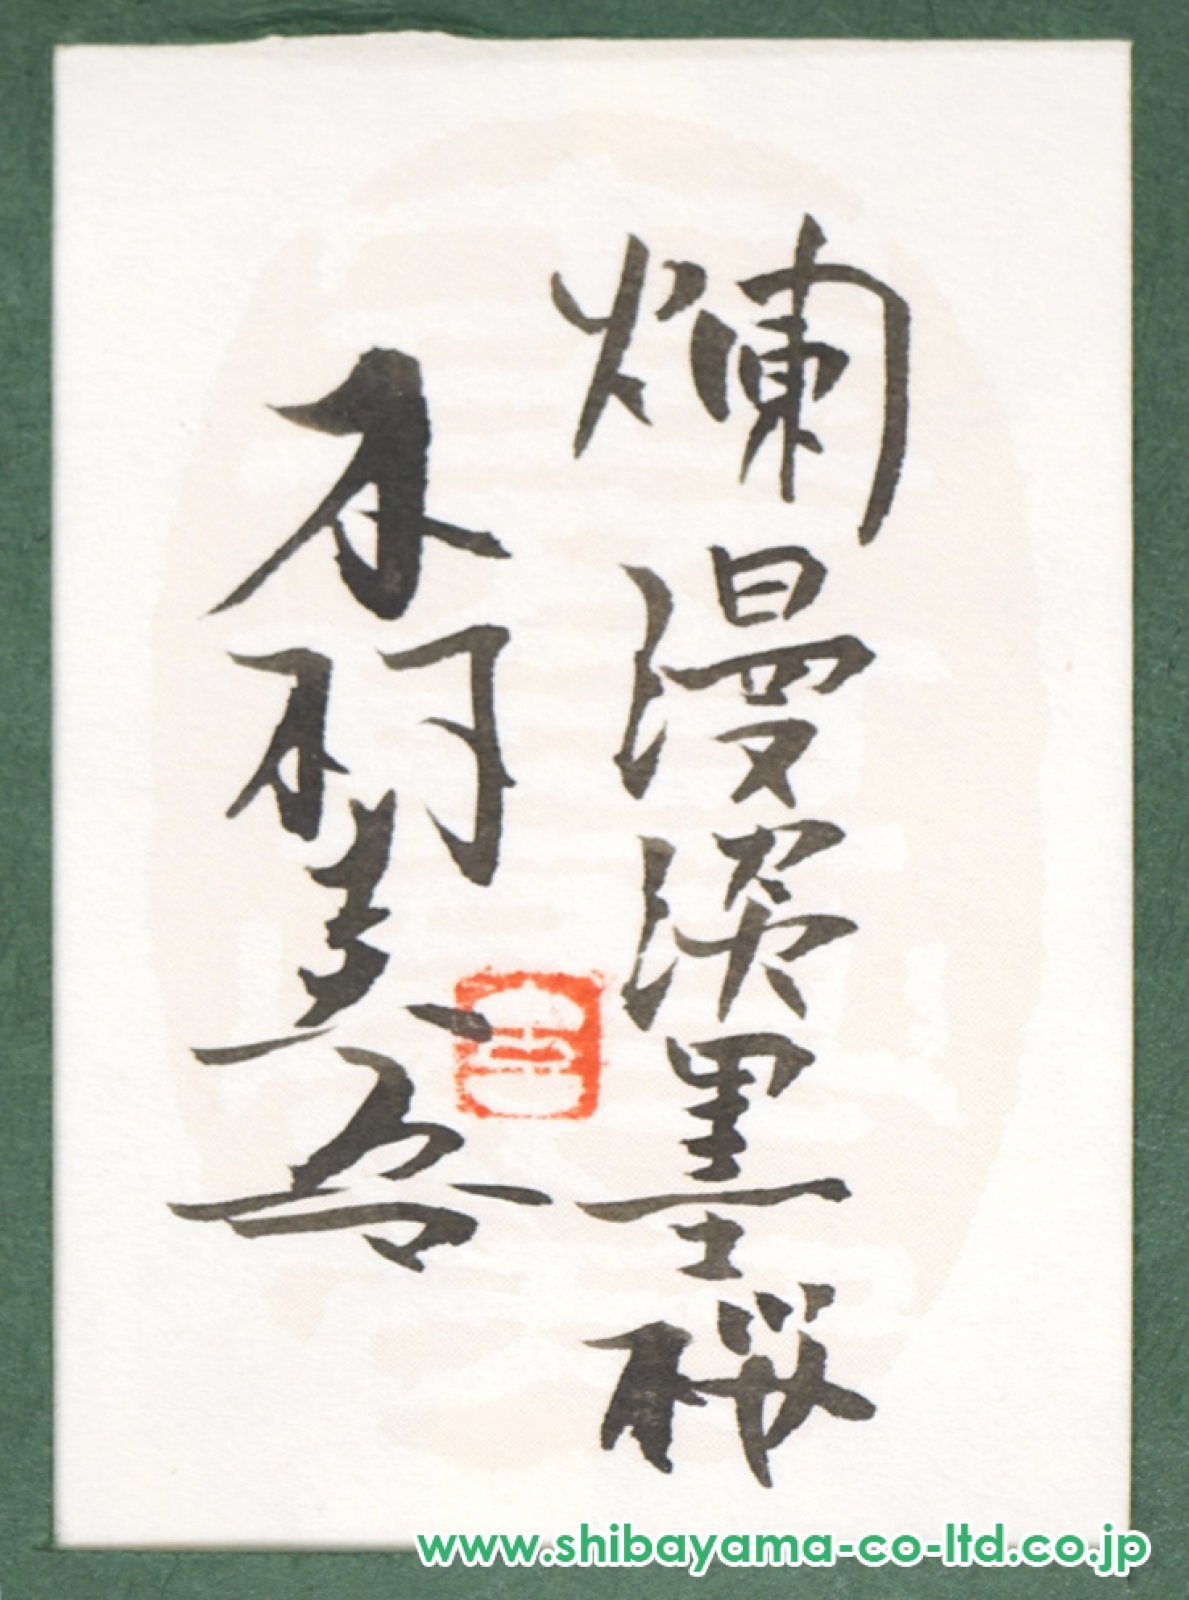 爛漫淡墨桜
木村圭吾
www.shibayama-co-ltd.co.jp